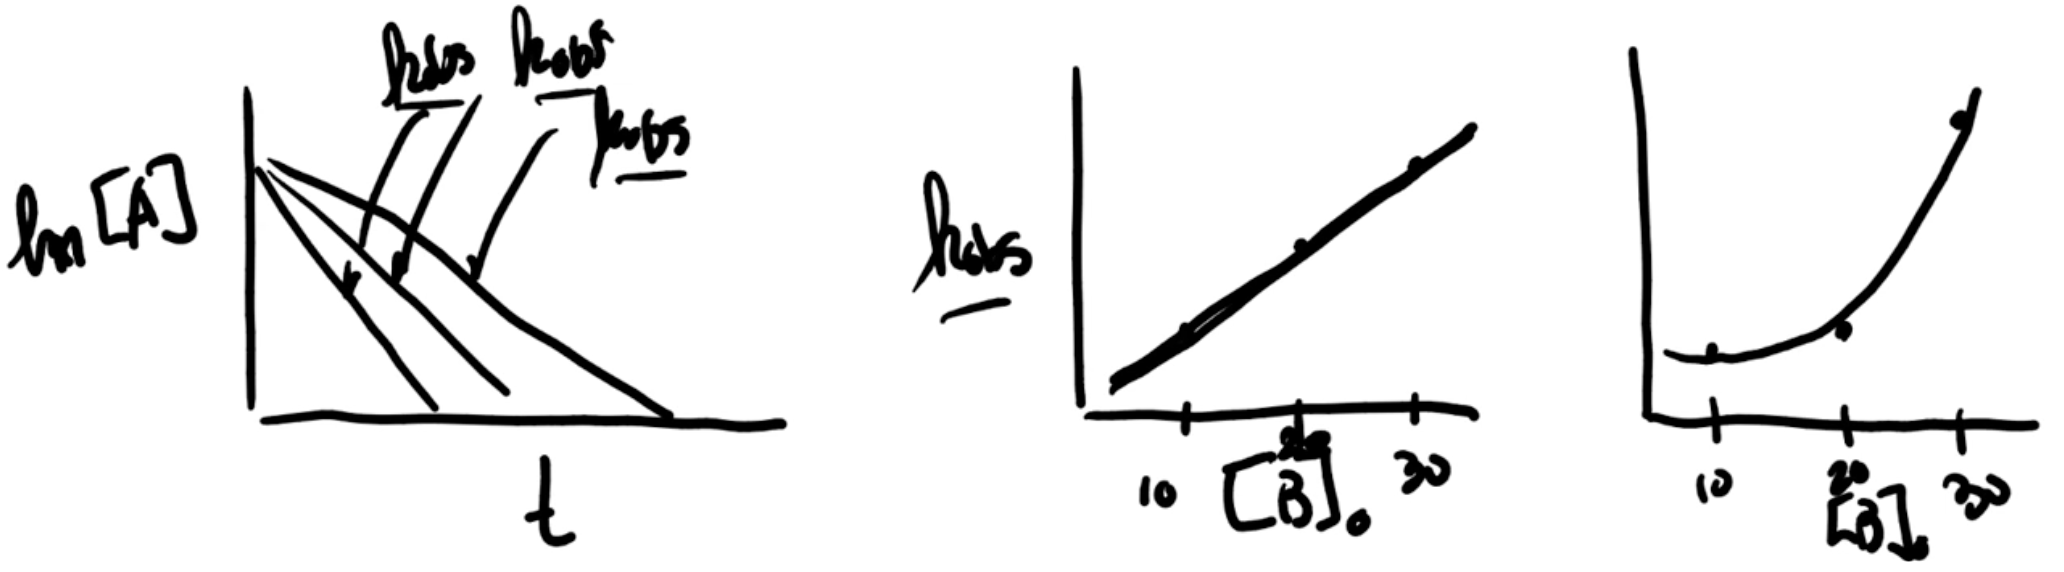 kobs kobs
kobs
ln [A]
t
kobs
10 20 30
[B]₀
10 20 30
[B]₀